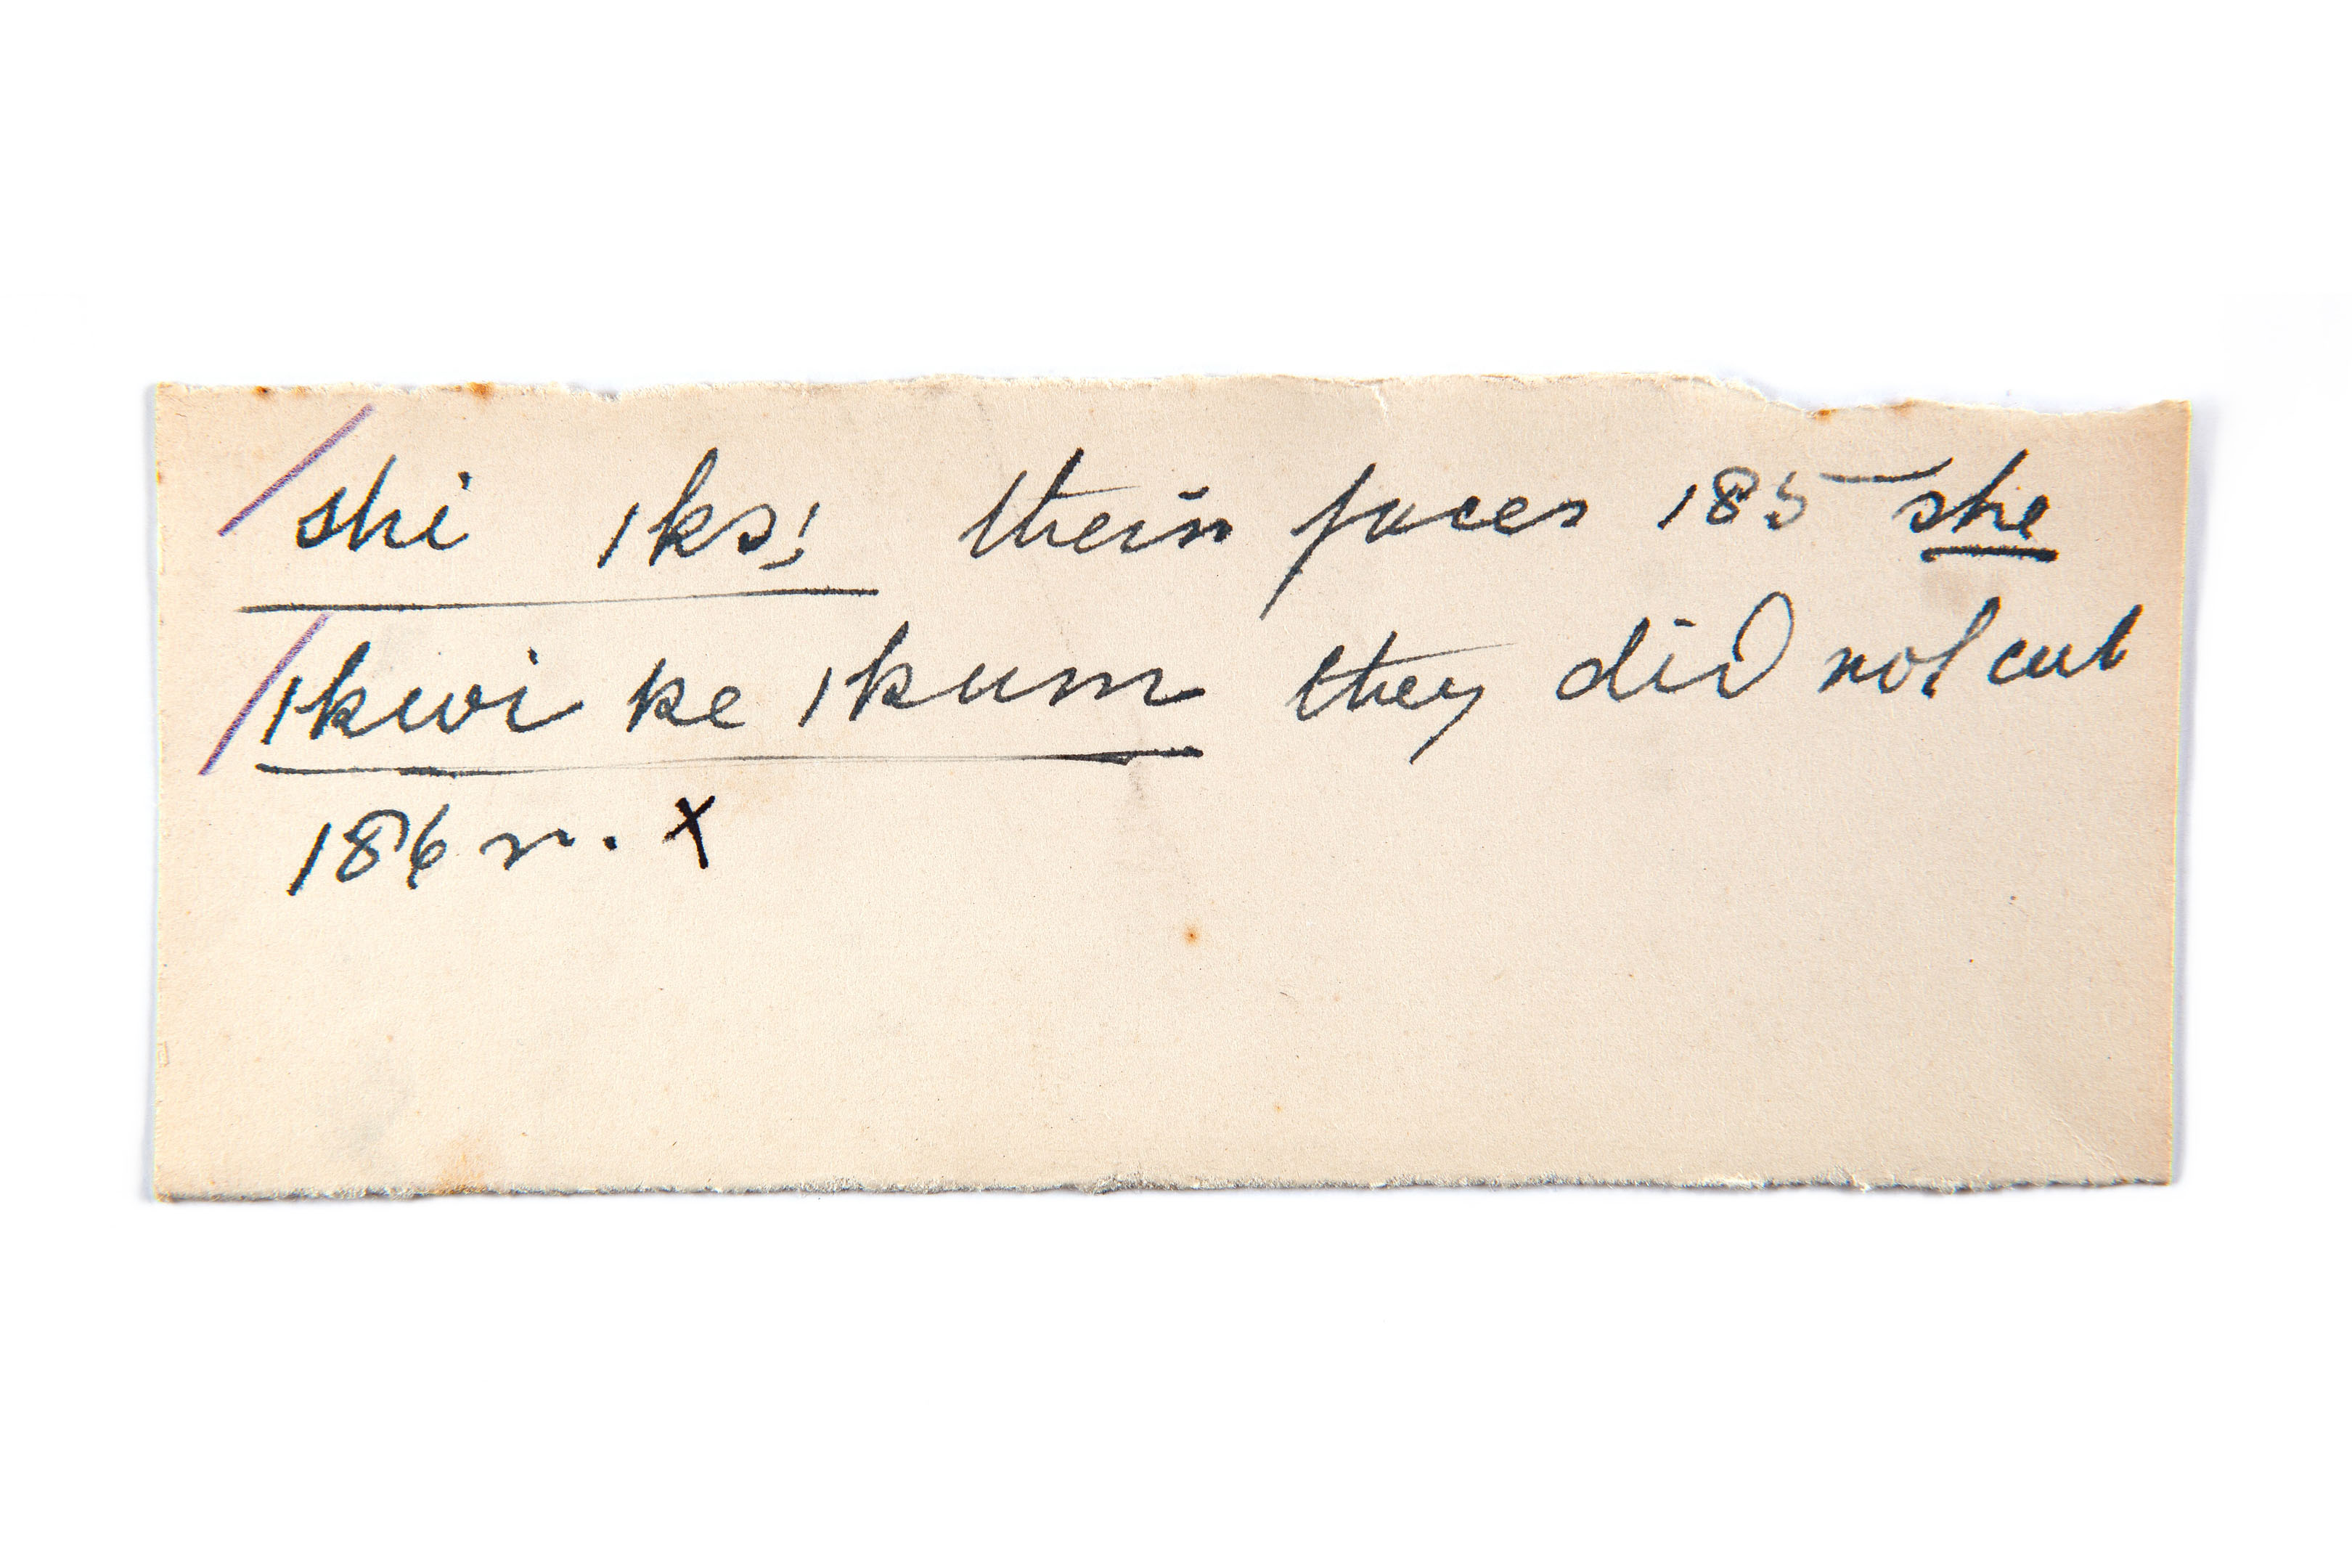 shi |ks! their faces 185 she
|kwi ke |kum they did not cut
186 r. x